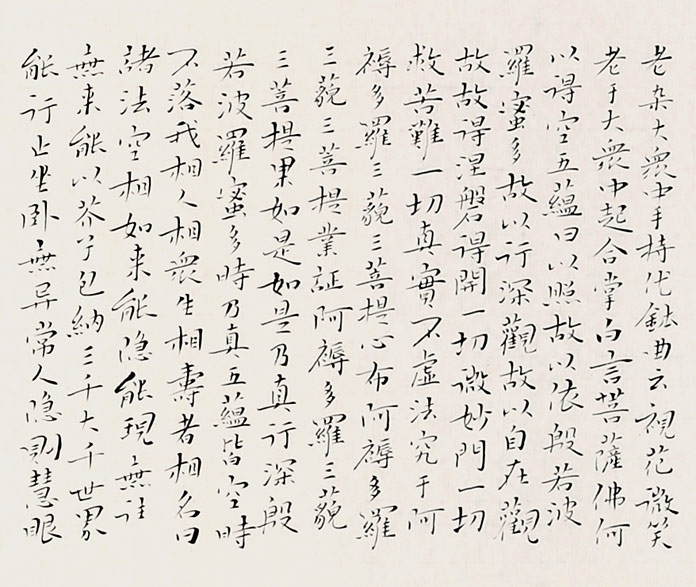 老杂大衆中手持化缽西云視花微笑
老于大衆中起合掌白言菩薩佛何
以得空五蘊曰以照故以依般若波
羅蜜多故以行深觀故以自在觀
故故得涅磐得開一切微妙門一切
救苦難一切真實不虛法究于阿
褥多羅三藐三菩提心布阿褥多羅
三藐三菩提業証阿褥多羅三藐
三菩提果如是如是乃真行深般
若波羅蜜多時乃真五蘊皆空時
不落我相人相衆生相壽者相名曰
諸法空相如来能隐能現無住
無来能以芥子包納三千大千世界
能行止坐卧無异常人隐則慧眼